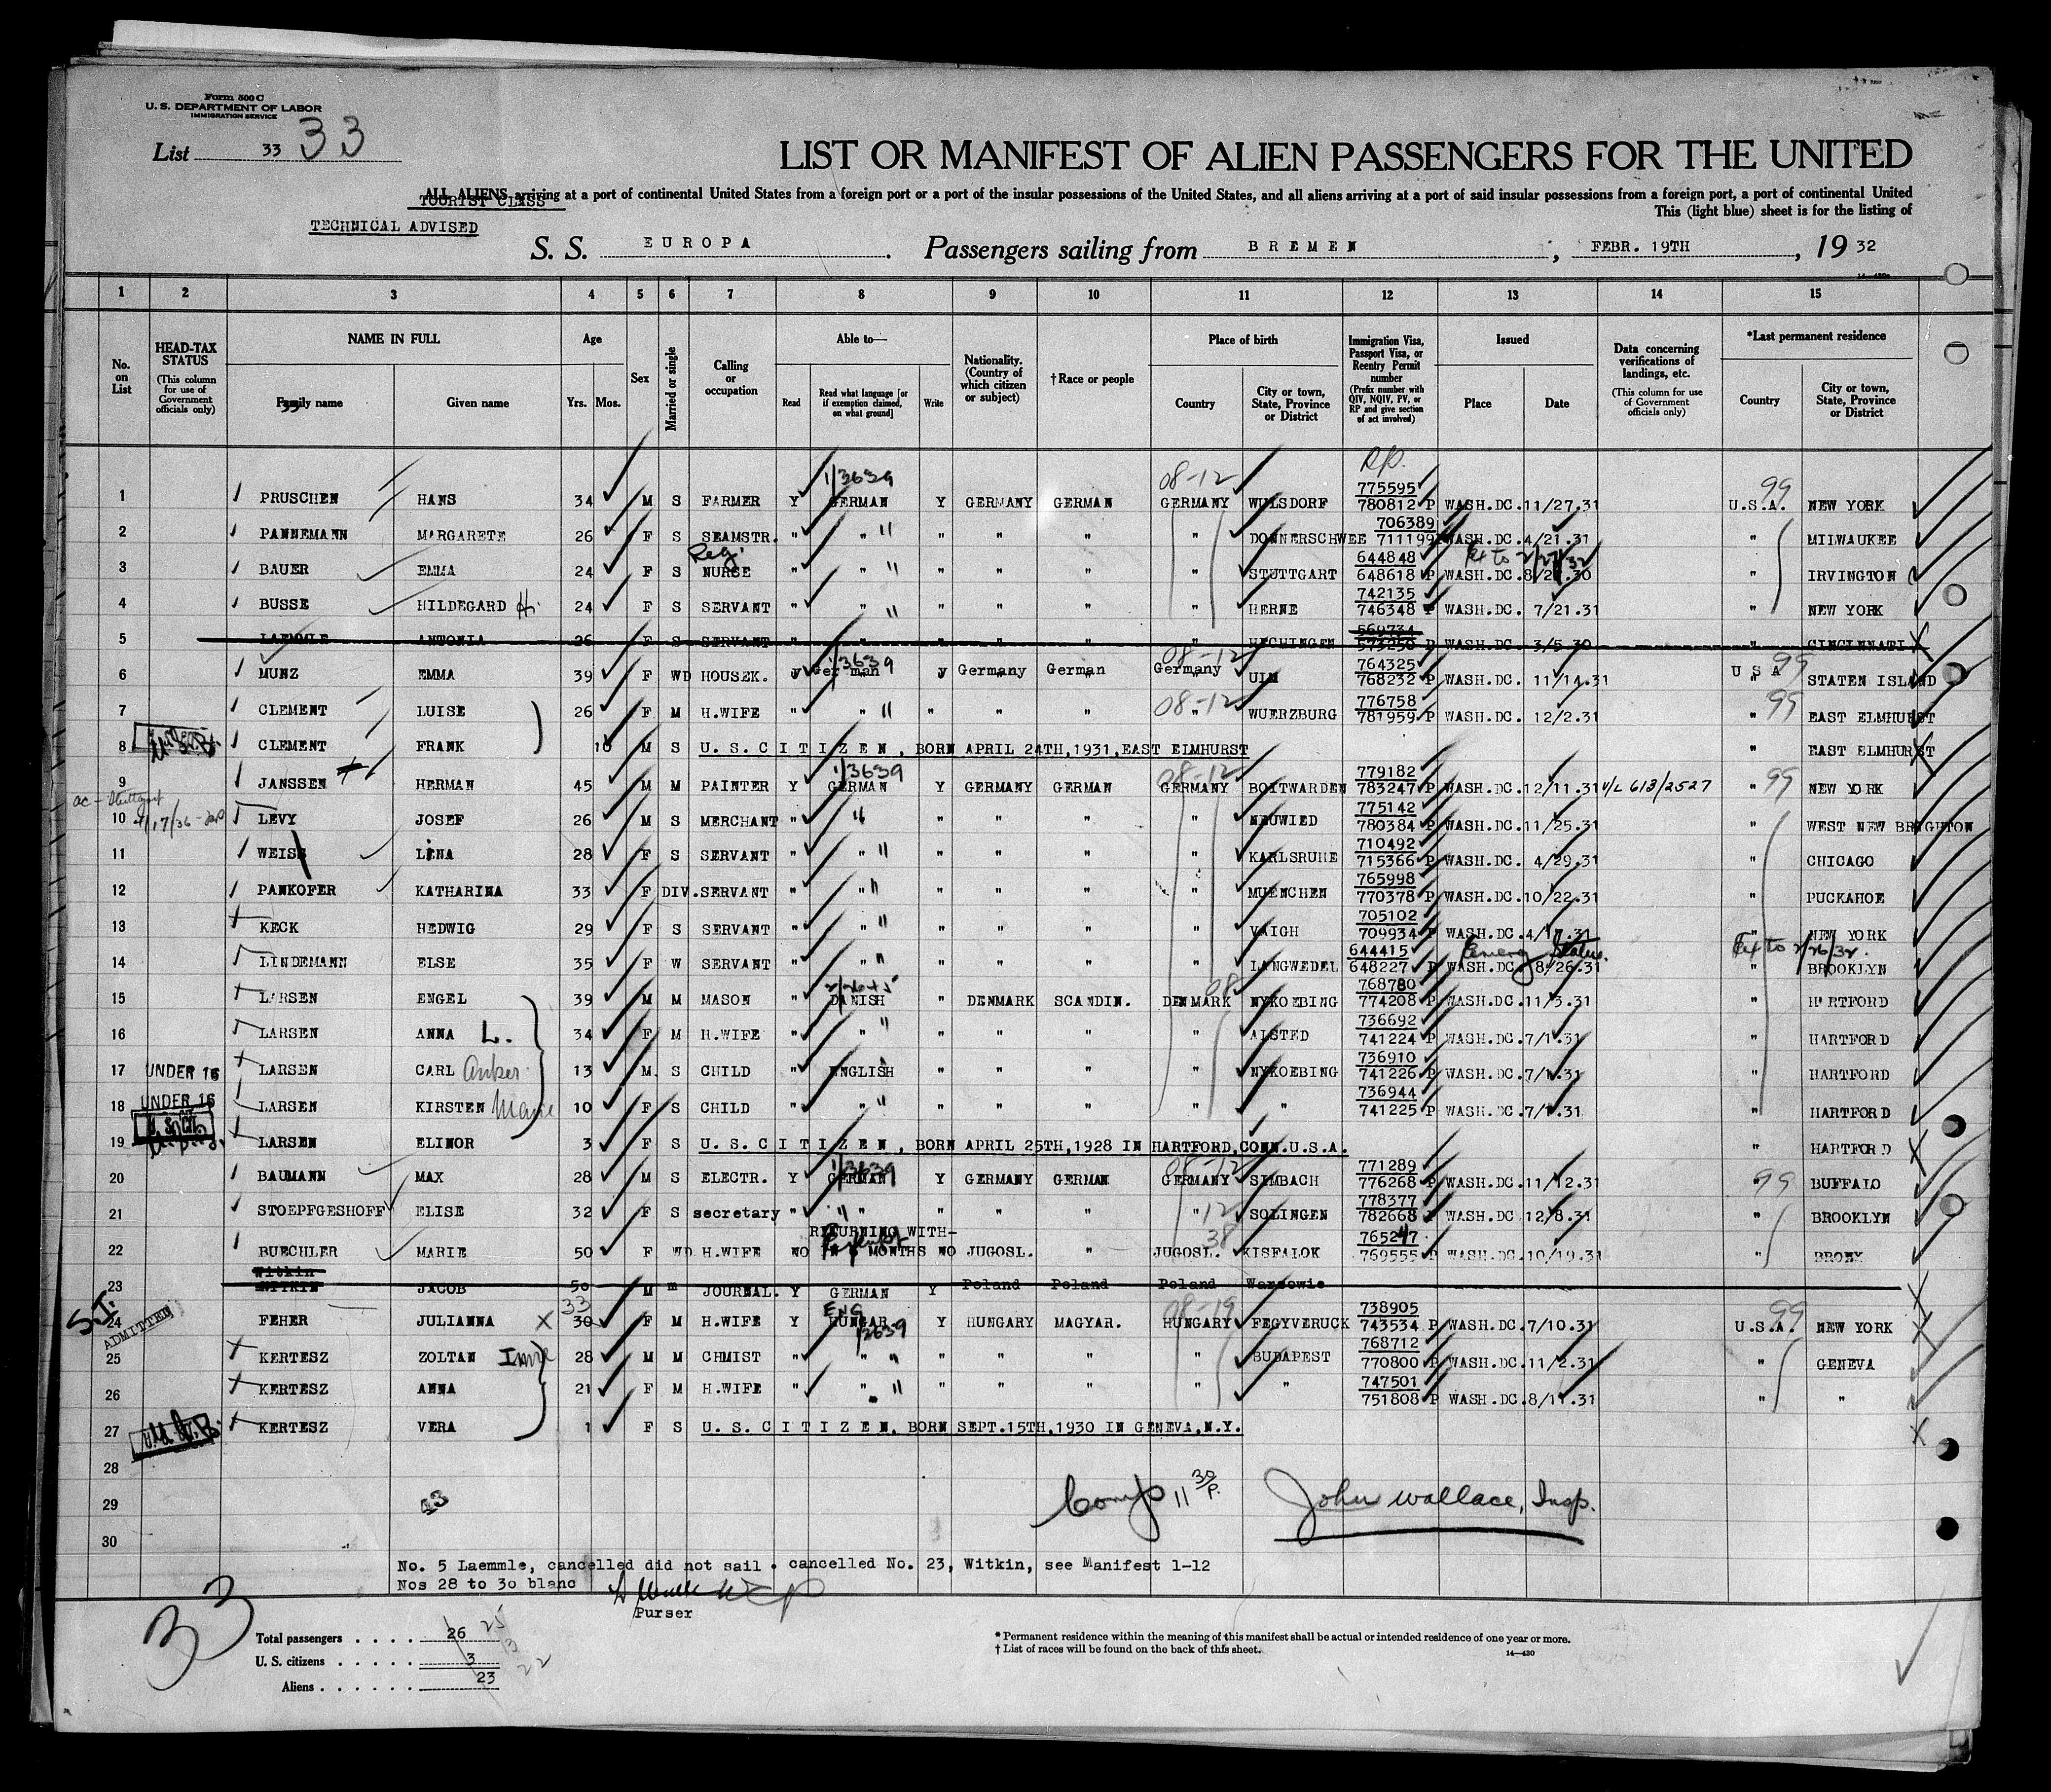 Form 500 C
U. S. DEPARTMENT OF LABOR
IMMIGRATION SERVICE
List 33 33
LIST OR MANIFEST OF ALIEN PASSENGERS FOR THE UNITED
ALL ALIENS arriving at a port of continental United States from a foreign port or a port of the insular possessions of the United States, and all aliens arriving at a port of said insular possessions from a foreign port, a port of continental United
TOURIST CLASS
This (light blue) sheet is for the listing of
TECHNICAL ADVISED
S. S. EUROPA. Passengers sailing from BREMEN, FEBR. 19TH, 19 32
1 2 3 4 5 6 7 8 9 10 11 12 13 14 15
No. on List
HEAD-TAX STATUS (This column for use of Government officials only)
NAME IN FULL Family name Given name
Age Yrs. Mos.
Sex
Married or single
Calling or occupation
Able to— Read Read what language [or if exemption claimed, on what ground] Write
Nationality. (Country of which citizen or subject)
†Race or people
Place of birth Country City or town, State, Province or District
Immigration Visa, Passport Visa, or Reentry Permit number (Prefix number with QIV, NQIV, PV, or RP and give section of act involved)
Issued Place Date
Data concerning verifications of landings, etc. (This column for use of Government officials only)
*Last permanent residence Country City or town, State, Province or District
1 PRUSCHEN HANS 34 M S FARMER Y GERMAN Y GERMANY GERMAN 08-12 GERMANY WULSDORF 775595 780812 P WASH.DC. 11/27.31 99 U.S.A. NEW YORK
2 PANNEMANN MARGARETE 26 F S SEAMSTR. " " " " " " DONNERSCHWEE 706389 711199 WASH.DC. 4/21.31 " MILWAUKEE
3 BAUER EMMA 24 F S Reg. NURSE " " " " " " STUTTGART 644848 648618 P WASH.DC. Ext to 2/27/32 " IRVINGTON
4 BUSSE HILDEGARD H. 24 F S SERVANT " " " " " " HERNE 742135 746348 P WASH.DC. 7/21.31 " NEW YORK
5 LAEMMLE ANTONIA 26 F S SERVANT " " " " " " HECHINGEN 569734 573250 P WASH.DC. 3/5.30 " CINCINNATI
6 MUNZ EMMA 39 F WD HOUSEK. y German y Germany German 08-12 Germany ULM 764325 768232 P WASH.DC. 11/14.31 99 U S A STATEN ISLAND
7 CLEMENT LUISE 26 F M H.WIFE " " " " " 08-12 WUERZBURG 776758 781959 P WASH.DC. 12/2.31 99 " EAST ELMHURST
8 CLEMENT FRANK 10 M S U. S. C I T I Z E N , BORN APRIL 24TH,1931,EAST ELMHURST " EAST ELMHURST
9 JANSSEN HERMAN 45 M M PAINTER Y GERMAN Y GERMANY GERMAN 08-12 GERMANY BOITWARDEN 779182 783247 P WASH.DC. 12/11.31 V/L 613/2527 99 " NEW YORK
10 LEVY JOSEF 26 M S MERCHANT " " " " " " NEUWIED 775142 780384 P WASH.DC. 11/25.31 " WEST NEW BRIGHTON
11 WEISS LENA 28 F S SERVANT " " " " " " KARLSRUHE 710492 715366 P WASH.DC. 4/29.31 " CHICAGO
12 PANKOFER KATHARINA 33 F DIV. SERVANT " " " " " " MUENCHEN 765998 770378 P WASH.DC. 10/22.31 " PUCKAHOE
13 KECK HEDWIG 29 F S SERVANT " " " " " " VAIGH 705102 709934 P WASH.DC. " NEW YORK
14 LINDEMANN ELSE 35 F W SERVANT " " " " " " LANGWEDEL 644415 648227 P WASH.DC. 8/26.31 Ext to 2/26/32. " BROOKLYN
15 LARSEN ENGEL 39 M M MASON " DANISH " DENMARK SCANDIN. 08 DENMARK NYKOEBING 768780 774208 P WASH.DC. 11/3.31 " HARTFORD
16 LARSEN ANNA L. 34 F M H.WIFE " " " " " " ALSTED 736692 741224 P WASH.DC. 7/1.31 " HARTFORD
17 UNDER 16 LARSEN CARL Anker 13 M S CHILD " ENGLISH " " " " NYKOEBING 736910 741226 P WASH.DC. 7/1.31 " HARTFORD
18 UNDER 16 LARSEN KIRSTEN Marie 10 F S CHILD " " " " " " " 736944 741225 P WASH.DC. 7/1.31 " HARTFORD
19 LARSEN ELINOR 3 F S U. S. C I T I Z E N , BORN APRIL 25TH,1928 IN HARTFORD,CONN.U.S.A. " HARTFORD
20 BAUMANN MAX 28 M S ELECTR. Y GERMAN Y GERMANY GERMAN 08-12 GERMANY SIMBACH 771289 776268 P WASH.DC. 11/12.31 99 BUFFALO
21 STOEPFGESHOFF ELISE 32 F S secretary " " " " " " SOLINGEN 778377 782668 P WASH.DC 12/8.31 " BROOKLYN
22 BUECHLER MARIE 50 F WD H.WIFE NO RETURNING WITH- MONTHS NO JUGOSL. " 38 JUGOSL. KISFALOK 769555 P WASH.DC. 10/19.31 " BRONX
23 Witkin WITKIN JACOB 50 M m JOURNAL. Y GERMAN Y Poland Poland Poland Warsowie
24 FEHER JULIANNA X 33 30 F M H.WIFE Y ENG HUNGAR. Y HUNGARY MAGYAR. 08-19 HUNGARY FEGYVERUCK 738905 743534 P WASH.DC. 7/10.31 99 U.S.A. NEW YORK
S.I. ADMITTED
25 KERTESZ ZOLTAN Imre 28 M M CHMIST " " " " " " BUDAPEST 768712 770800 P WASH.DC. 11/2.31 " GENEVA
26 KERTESZ ANNA 21 F M H.WIFE " " " " " " " 747501 751808 P WASH.DC. 8/11.31 " "
27 KERTESZ VERA 1 F S U. S. C I T I Z E N, BORN SEPT.15TH,1930 IN GENEVA,N.Y.
28
29
30
Comp 11 30 P. John Wallace, Insp.
No. 5 Laemmle, cancelled did not sail . cancelled No. 23, Witkin, see Manifest 1-12
Nos 28 to 30 blanc
Purser
33
Total passengers . . . . 26 25
U. S. citizens . . . . . 3 3
Aliens . . . . . . 23 22
* Permanent residence within the meaning of this manifest shall be actual or intended residence of one year or more.
† List of races will be found on the back of this sheet.
14—430